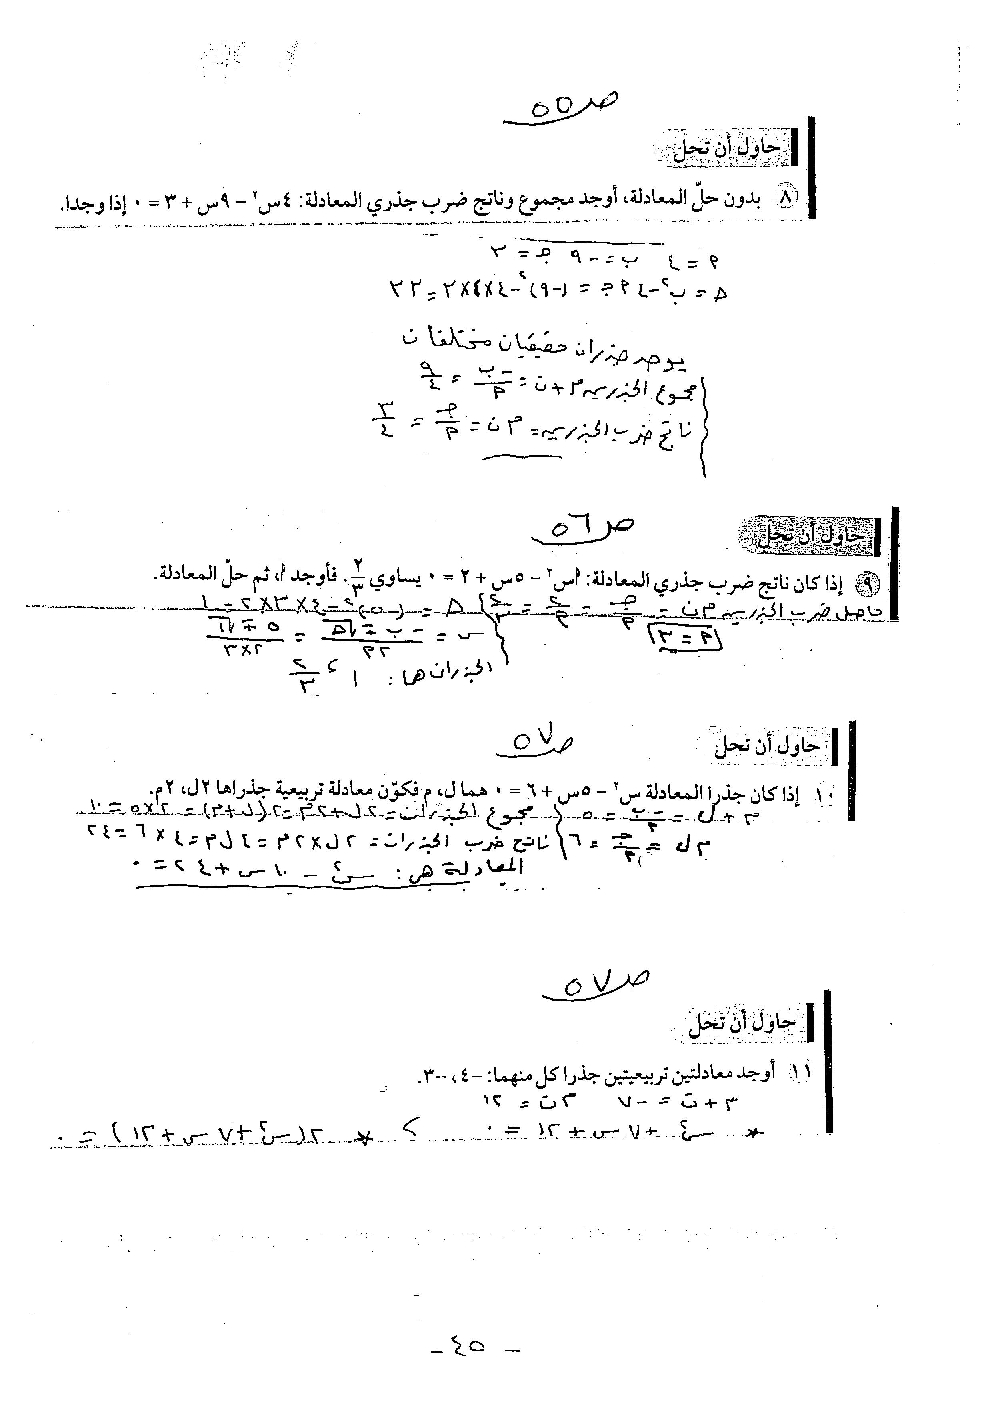 ص ٥٥
حاول أن تحل
٨ بدون حلّ المعادلة، أوجد مجموع وناتج ضرب جذري المعادلة: ٤س٢ - ٩س + ٣ = ٠ إذا وجدا.
م = ٤ ب = -٩ جـ = ٣
Δ = ب٢ - ٤ م جـ = (-٩)٢ - ٤×٤×٣ = ٣٣
يوجد جذران حقيقيان مختلفان
مجموع الجذرين م + ن = -ب/م = ٩/٤
ناتج ضرب الجذرين = م ن = جـ/م = ٣/٤
ص ٥٦
حاول أن تحل
٩ إذا كان ناتج ضرب جذري المعادلة: أس٢ - ٥س + ٢ = ٠ يساوي ٢/٣. فأوجد أ، ثم حلّ المعادلة.
حاصل ضرب الجذرين م ن = جـ/م = ٢/م = ٢/٣ Δ = (-٥)٢ - ٤×٣×٢ = ١
م = ٣ س = -ب ∓ √Δ / ٢م = ٥ ∓ √١ / ٢×٣
الجذران هما: ١ ، ٢/٣
ص ٥٧
حاول أن تحل
١٠ إذا كان جذرا المعادلة س٢ - ٥س + ٦ = ٠ هما ل، م فكوّن معادلة تربيعية جذراها ٢ل، ٢م.
م + ل = -ب/م = ٥ مجموع الجذران = ٢ل + ٢م = ٢(ل + م) = ٢×٥ = ١٠
م ل = جـ/م = ٦ ناتج ضرب الجذران = ٢ل×٢م = ٤ل م = ٤×٦ = ٢٤
المعادلة هي: س٢ - ١٠س + ٢٤ = ٠
ص ٥٧
حاول أن تحل
١١ أوجد معادلتين تربيعيتين جذرا كل منهما: -٤، -٣.
م + ن = -٧ م ن = ١٢
* س٢ + ٧س + ١٢ = ٠ ، * ٢(س٢ + ٧س + ١٢) = ٠
- ٤٥ -